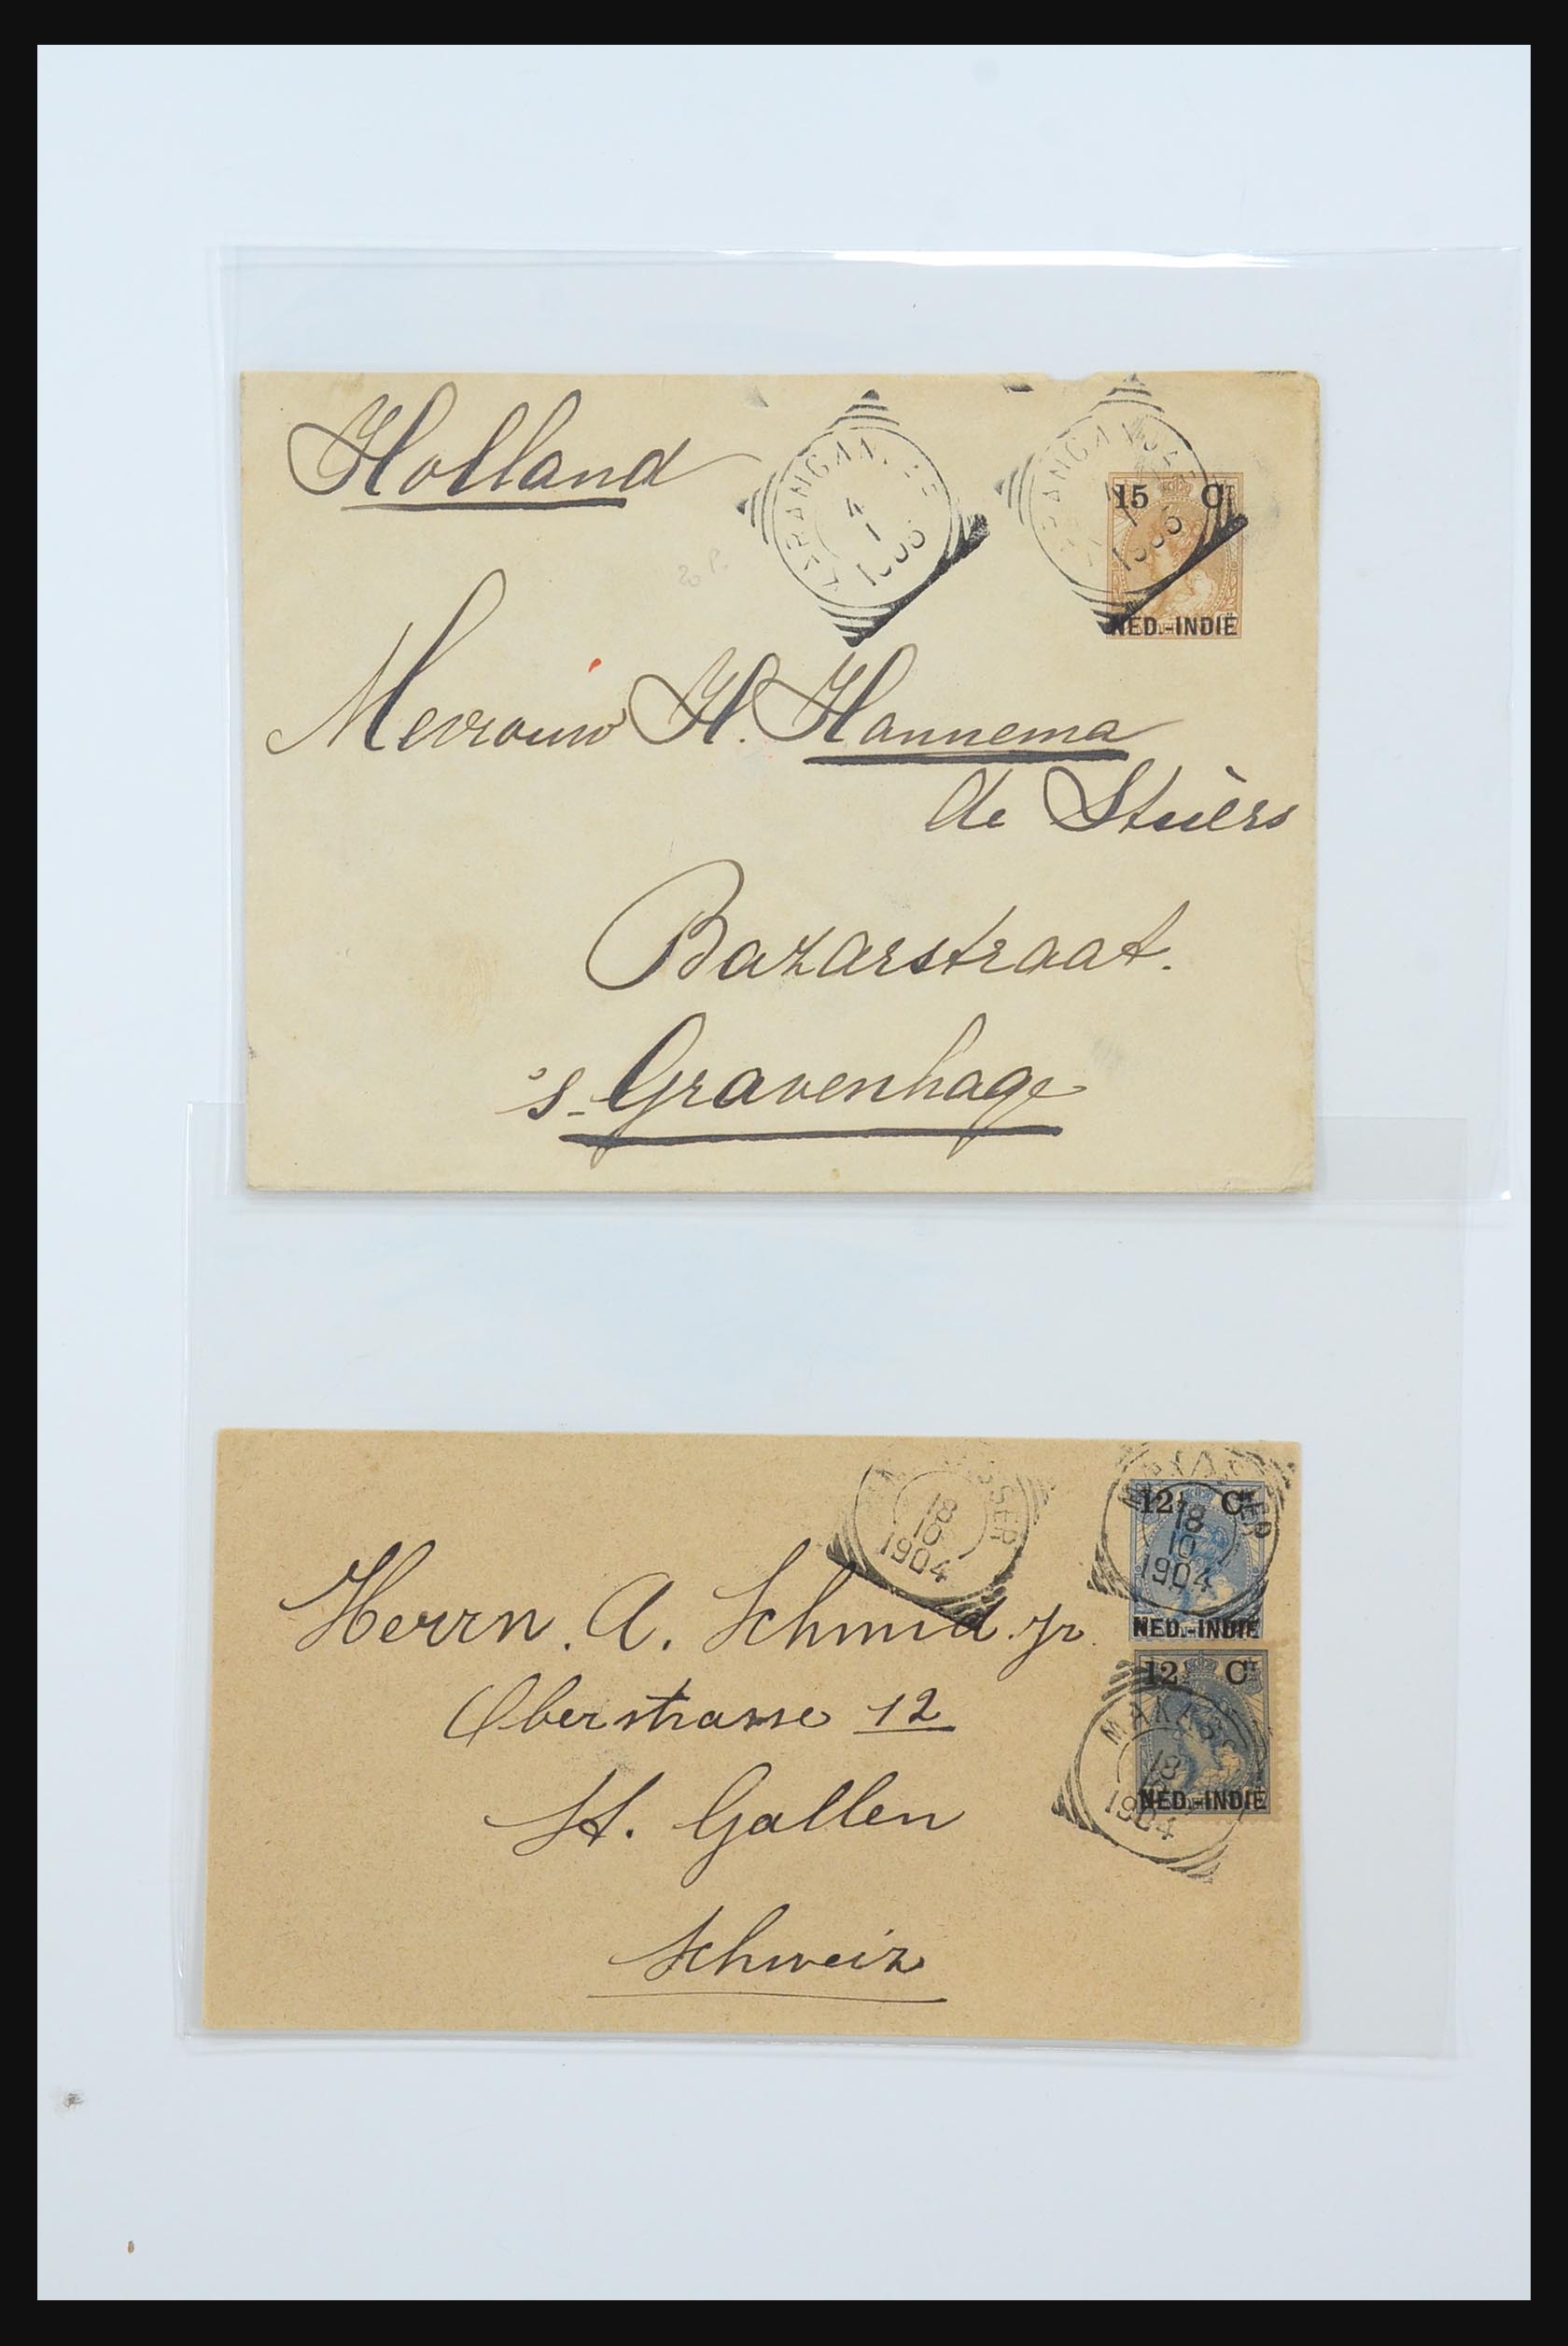 Holland
4
1
15 Ct
NED.-INDIË
20 P.
Mevrouw H. Hannema
de Stuèrs
Bazarstraat.
's-Gravenhage
MAKASSER
18
10
1904
MAKASSER
18
10
1904
12½ Ct
NED.-INDIË
12½ Ct
NED.-INDIË
MAKASSER
18
10
1904
Herrn. A. Schmid jr.
Oberstrasse 12
St. Gallen
Schweiz